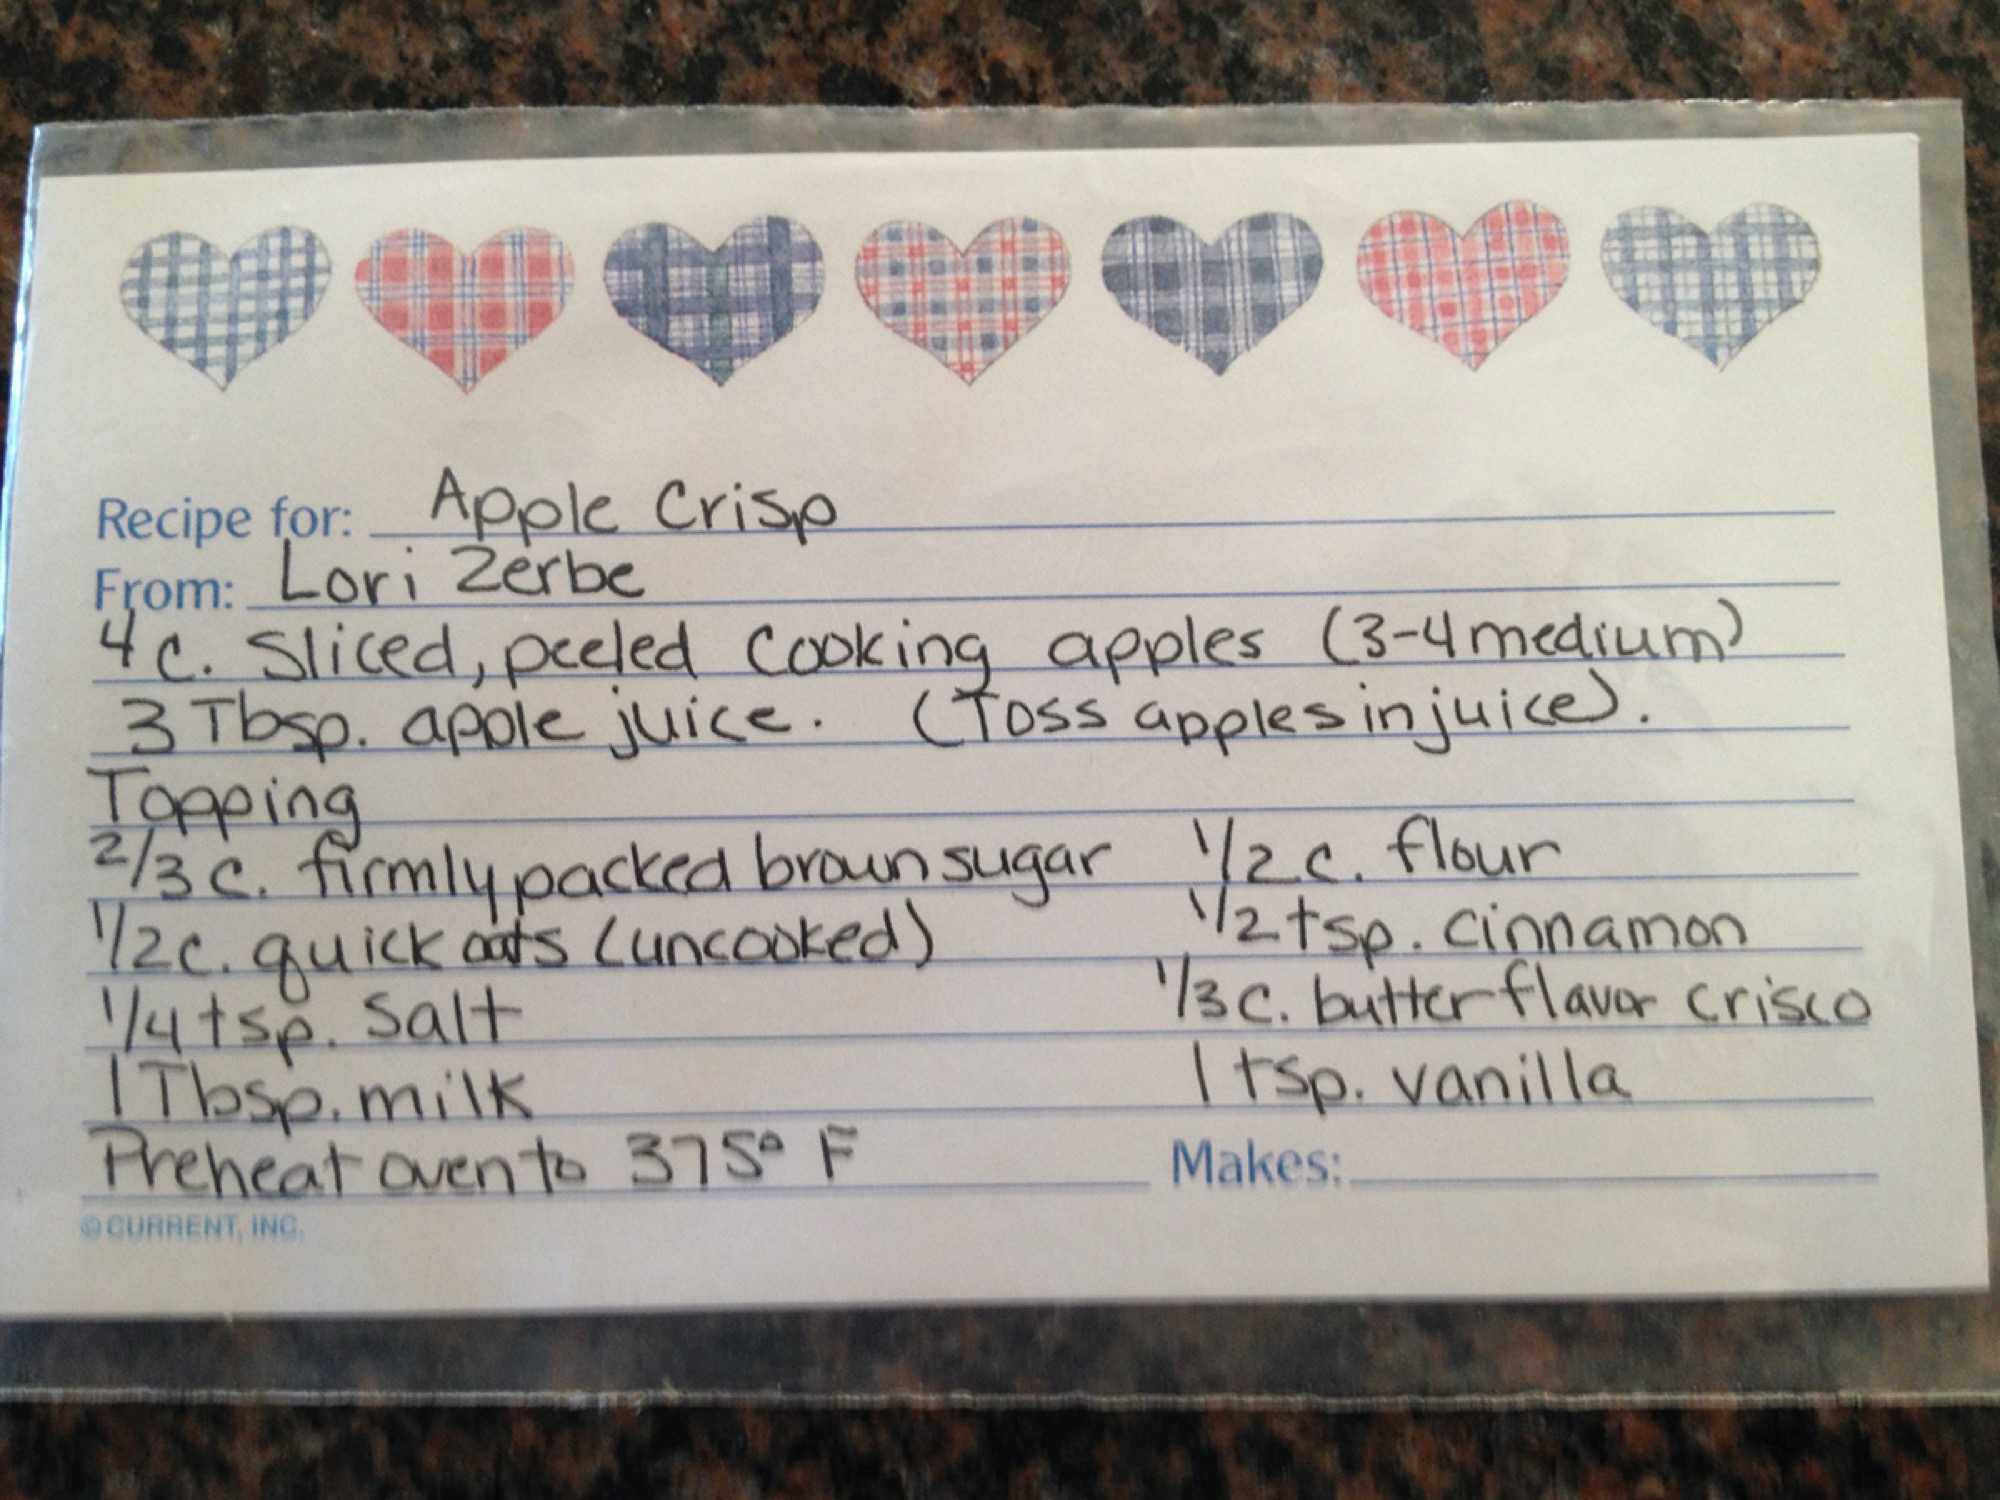 Recipe for: Apple Crisp
From: Lori Zerbe
4 c. Sliced, peeled cooking apples (3-4 medium)
3 Tbsp. apple juice. (Toss apples in juice).
Topping
2/3 c. firmly packed brown sugar 1/2 c. flour
1/2 c. quick oats (uncooked) 1/2 tsp. cinnamon
1/4 tsp. salt 1/3 c. butter flavor crisco
1 Tbsp. milk 1 tsp. vanilla
Preheat oven to 375° F Makes:
© CURRENT, INC.